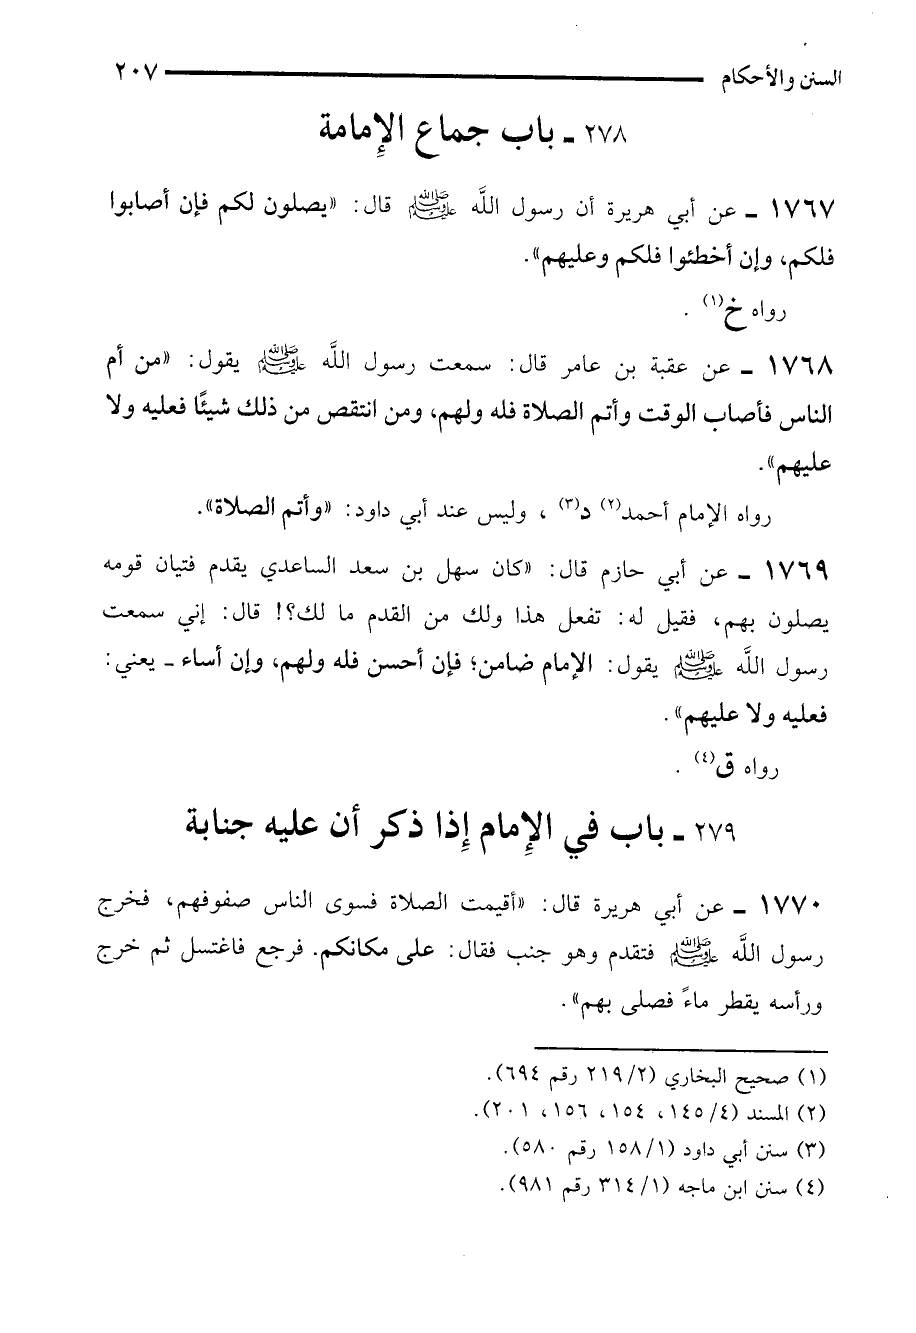 السنن والأحكام ٢٠٧
٢٧٨ ـ باب جماع الإِمامة
١٧٦٧ ـ عن أبي هريرة أن رسول اللَّه ﷺ قال: «يصلون لكم فإن أصابوا
فلكم، وإن أخطئوا فلكم وعليهم».
رواه خ(١) .
١٧٦٨ ـ عن عقبة بن عامر قال: سمعت رسول اللَّه ﷺ يقول: «من أم
الناس فأصاب الوقت وأتم الصلاة فله ولهم، ومن انتقص من ذلك شيئًا فعليه ولا
عليهم».
رواه الإمام أحمد(٢) د(٣) ، وليس عند أبي داود: «وأتم الصلاة».
١٧٦٩ ـ عن أبي حازم قال: «كان سهل بن سعد الساعدي يقدم فتيان قومه
يصلون بهم، فقيل له: تفعل هذا ولك من القدم ما لك؟! قال: إني سمعت
رسول اللَّه ﷺ يقول: الإمام ضامن؛ فإن أحسن فله ولهم، وإن أساء ـ يعني:
فعليه ولا عليهم».
رواه ق(٤) .
٢٧٩ ـ باب في الإِمام إِذا ذكر أن عليه جنابة
١٧٧٠ ـ عن أبي هريرة قال: «أقيمت الصلاة فسوى الناس صفوفهم، فخرج
رسول اللَّه ﷺ فتقدم وهو جنب فقال: على مكانكم. فرجع فاغتسل ثم خرج
ورأسه يقطر ماءً فصلى بهم».
(١) صحيح البخاري (٢/ ٢١٩ رقم ٦٩٤).
(٢) المسند (٤/ ١٤٥، ١٥٤، ١٥٦، ٢٠١).
(٣) سنن أبي داود (١/ ١٥٨ رقم ٥٨٠).
(٤) سنن ابن ماجه (١/ ٣١٤ رقم ٩٨١).